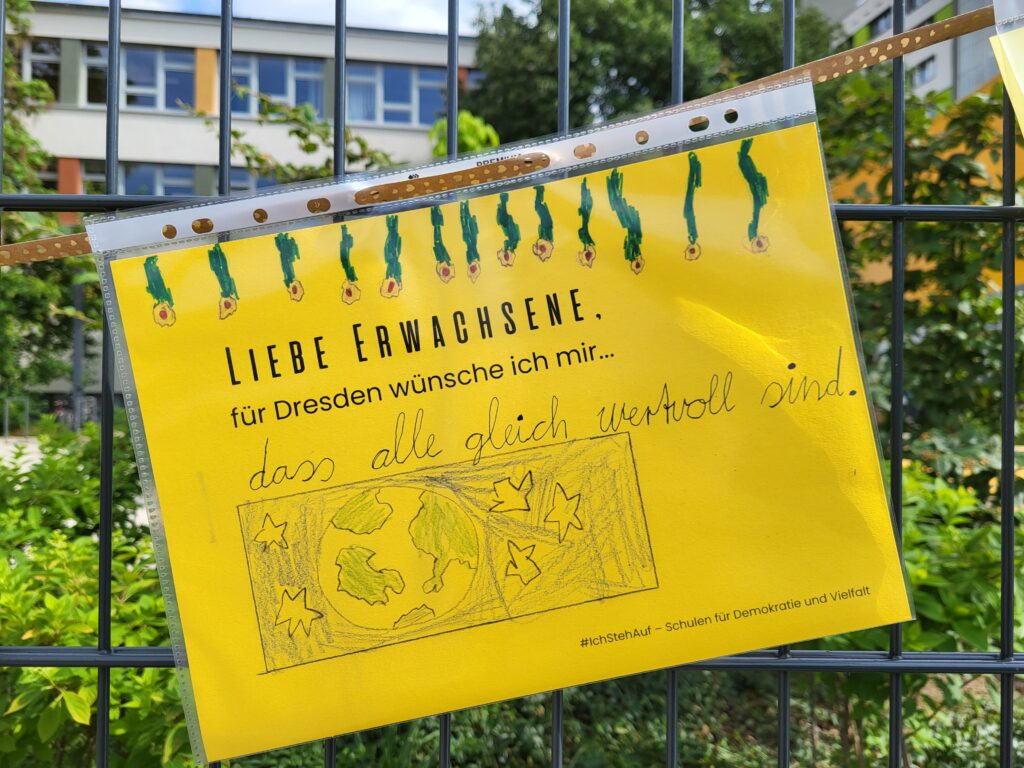 PREMIUM
LIEBE ERWACHSENE,
für Dresden wünsche ich mir...
dass alle gleich wertvoll sind.
#IchStehAuf – Schulen für Demokratie und Vielfalt